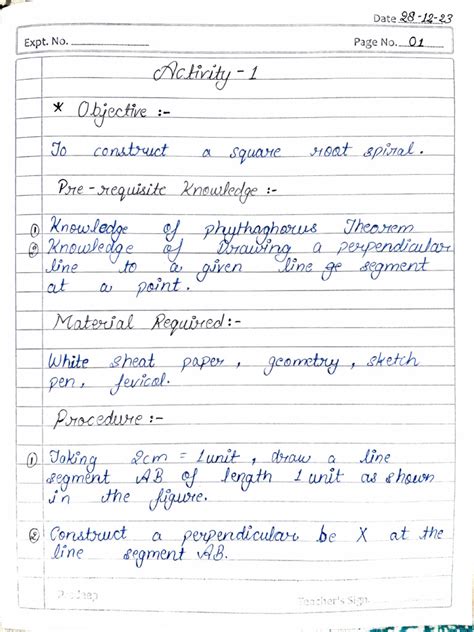 Date 28-12-23
Expt. No.
Page No. 01
Activity - 1
* Objective :-
To construct a square root spiral.
Pre-requisite Knowledge :-
① Knowledge of phythaghorus Theorem
② Knowledge of Drawing a perpendicular
line to a given line ge segment
at a point.
Material Required:-
White sheat paper, geometry, sketch
pen, fevicol.
Procedure :-
① Taking 2cm = 1unit, draw a line
segment AB of length 1 unit as shown
in the figure.
② Construct a perpendicular be X at the
line segment AB.
Teacher's Sign.